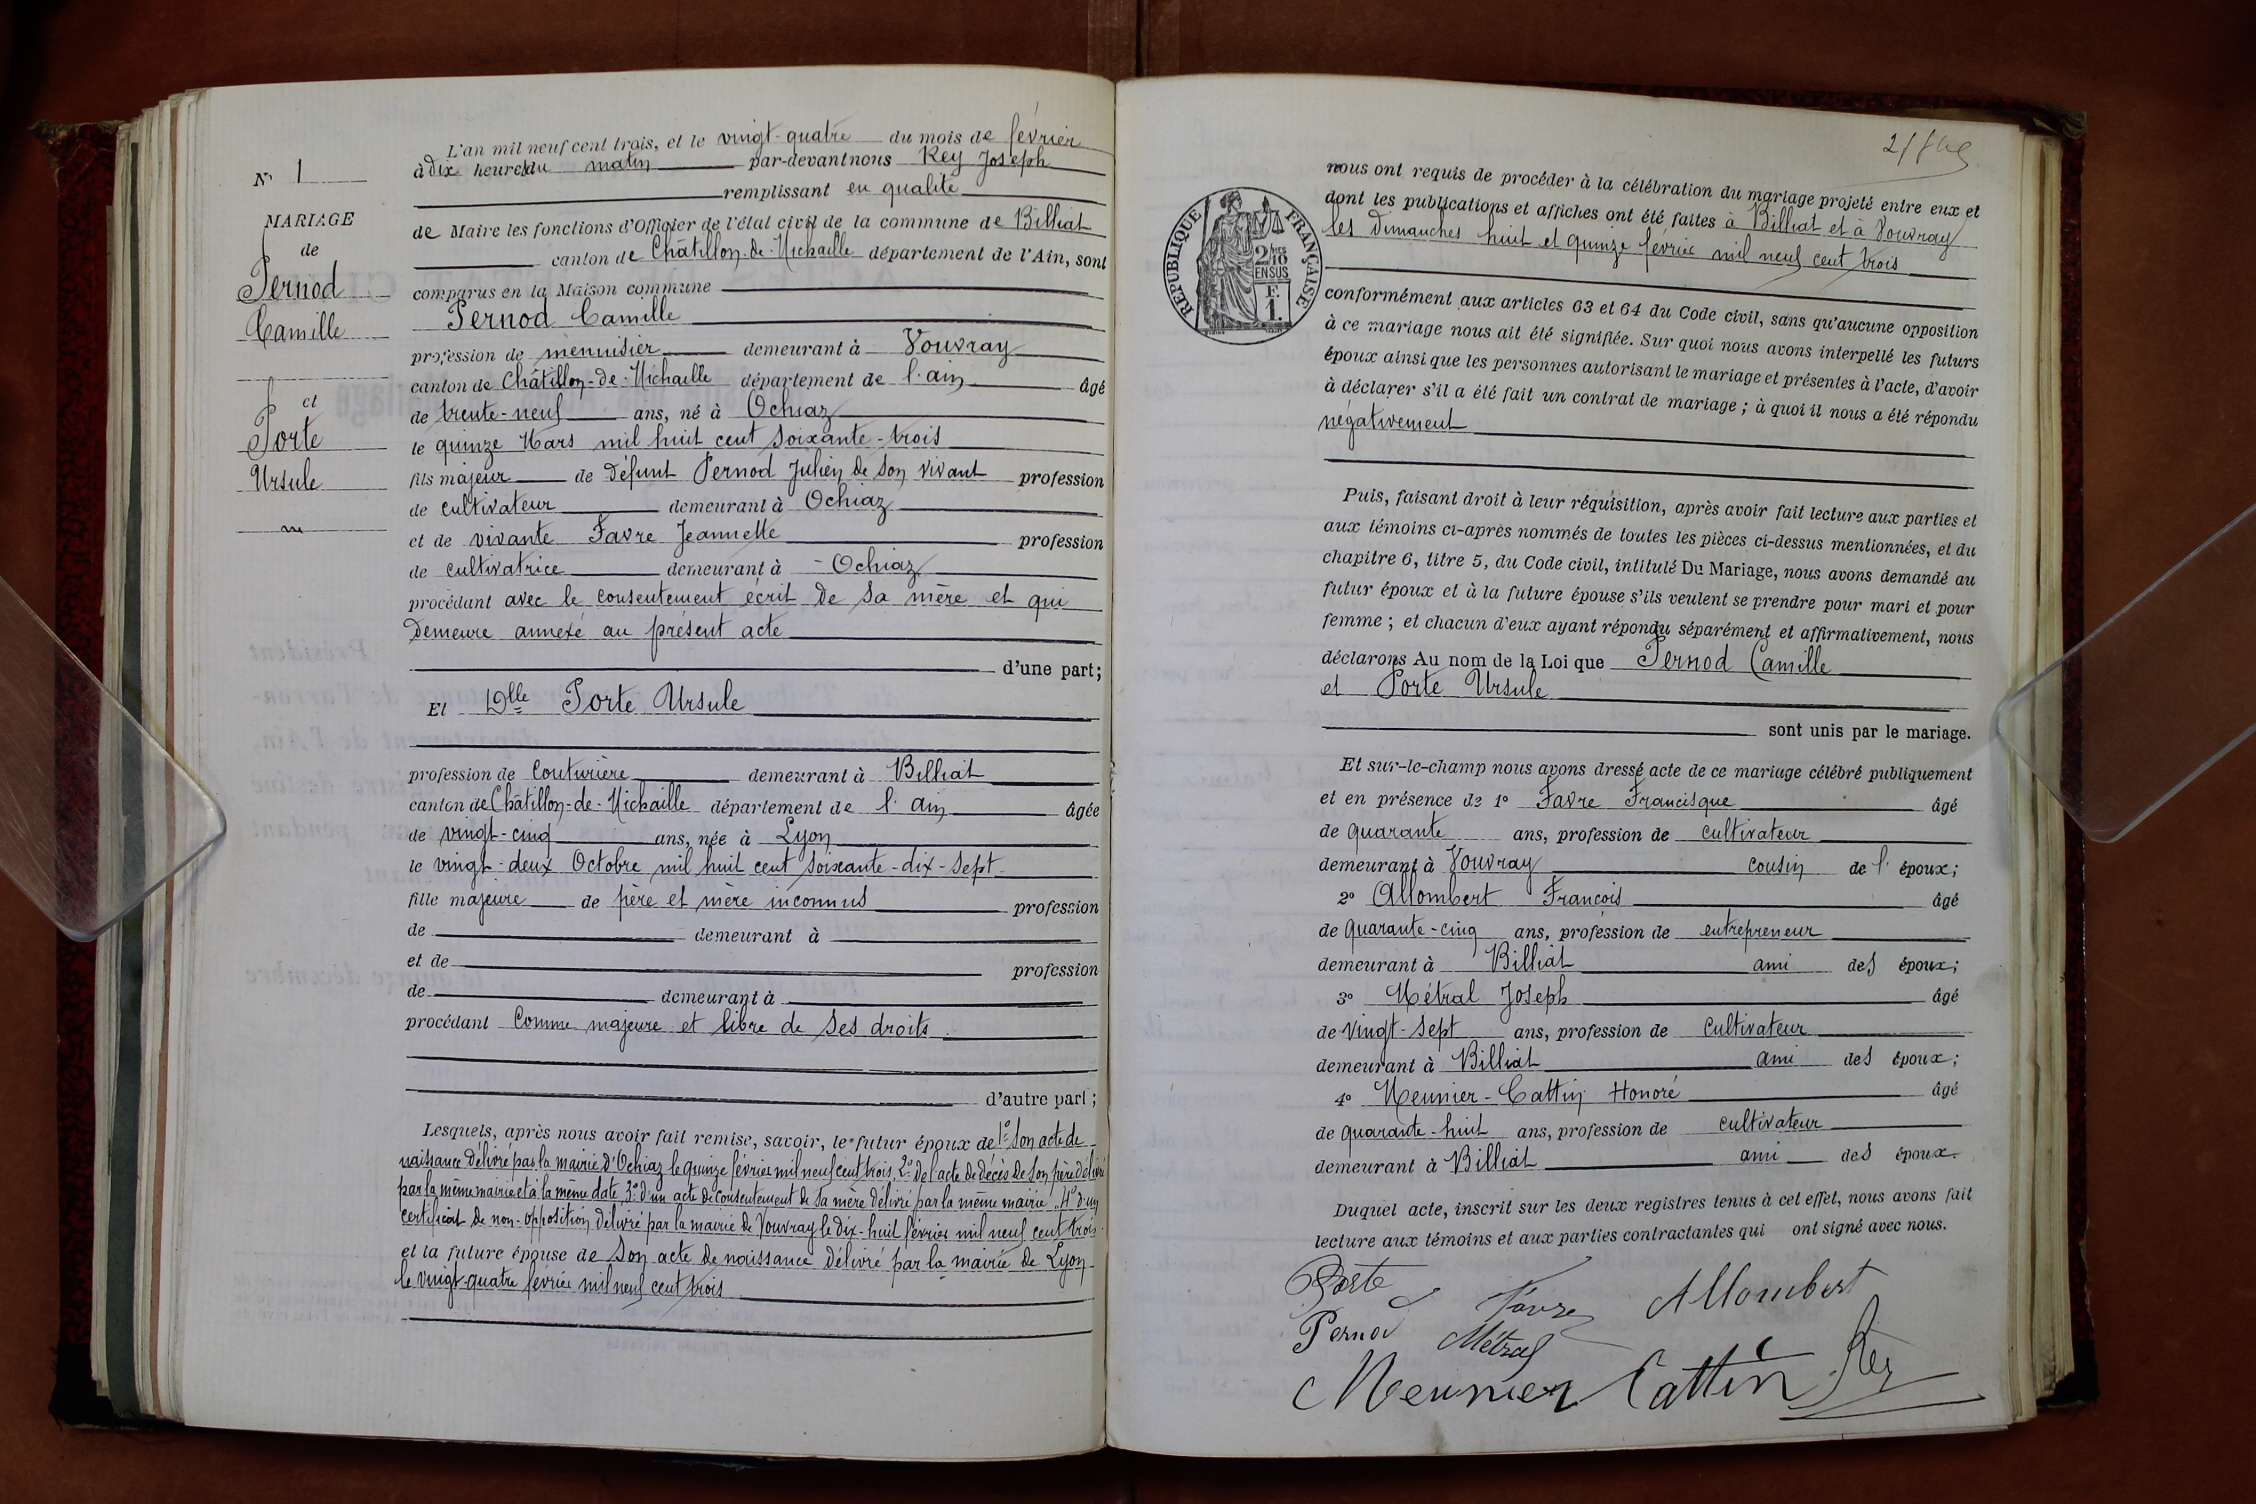 L'an mil neuf cent trois, et le vingt-quatre du mois de février
à dix heures du matin par-devant nous Rey Joseph
remplissant en qualité
de Maire les fonctions d'Officier de l'état civil de la commune de Billiat
canton de Châtillon-de-Michaille département de l'Ain, sont
comparus en la Maison commune
Pernod Camille
profession de menuisier demeurant à Vouvray
canton de Châtillon-de-Michaille département de l'ain âgé
de trente-neuf ans, né à Ochiaz
le quinze Mars mil huit cent soixante-trois
fils majeur de défunt Pernod Julien de son vivant profession
de cultivateur demeurant à Ochiaz
et de vivante Favre Jeannette profession
de cultivatrice demeurant à Ochiaz
procédant avec le consentement écrit de sa mère et qui
Demeure annexé au présent acte
d'une part;
Et Dlle Porte Ursule
profession de Couturière demeurant à Billiat
canton de Châtillon-de-Michaille département de l'ain âgée
de vingt-cinq ans, née à Lyon
le vingt-deux Octobre mil huit cent soixante-dix-sept
fille majeure de père et mère inconnus profession
de demeurant à
et de profession
de demeurant à
procédant Comme majeure et libre de ses droits
d'autre part;
Lesquels, après nous avoir fait remise, savoir, le futur époux de 1° Son acte de
naissance délivré par la mairie d'Ochiaz le quinze février mil neuf cent trois, 2° de l'acte de décès de son père délivré
par la même mairie et à la même date, 3° d'un acte de consentement de sa mère délivré par la même mairie. 4° d'un
certificat de non-opposition délivré par la mairie de Vouvray le dix-huit février mil neuf cent trois
et la future épouse de Son acte de naissance délivré par la mairie de Lyon
le vingt-quatre février mil neuf cent trois
N° 1
MARIAGE
de
Pernod
Camille
et
Porte
Ursule
nous ont requis de procéder à la célébration du mariage projeté entre eux et
dont les publications et affiches ont été faites à Billiat et à Vouvray
les Dimanches huit et quinze février mil neuf cent trois
conformément aux articles 63 et 64 du Code civil, sans qu'aucune opposition
à ce mariage nous ait été signifiée. Sur quoi nous avons interpellé les futurs
époux ainsi que les personnes autorisant le mariage et présentes à l'acte, d'avoir
à déclarer s'il a été fait un contrat de mariage; à quoi il nous a été répondu
négativement
RÉPUBLIQUE FRANÇAISE
2/10 EN SUS
F.
1.
Puis, faisant droit à leur réquisition, après avoir fait lecture aux parties et
aux témoins ci-après nommés de toutes les pièces ci-dessus mentionnées, et du
chapitre 6, titre 5, du Code civil, intitulé Du Mariage, nous avons demandé au
futur époux et à la future épouse s'ils veulent se prendre pour mari et pour
femme; et chacun d'eux ayant répondu séparément et affirmativement, nous
déclarons Au nom de la Loi que Pernod Camille
et Porte Ursule
sont unis par le mariage.
Et sur-le-champ nous avons dressé acte de ce mariage célébré publiquement
et en présence de 1° Favre Francisque âgé
de quarante ans, profession de cultivateur
demeurant à Vouvray cousin de l'époux;
2° Allombert François âgé
de quarante-cinq ans, profession de entrepreneur
demeurant à Billiat ami des époux;
3° Métral Joseph âgé
de vingt-sept ans, profession de cultivateur
demeurant à Billiat ami des époux;
4° Meunier-Cattin Honoré âgé
de quarante-huit ans, profession de cultivateur
demeurant à Billiat ami des époux.
Duquel acte, inscrit sur les deux registres tenus à cet effet, nous avons fait
lecture aux témoins et aux parties contractantes qui ont signé avec nous.
Porte
Favre
Allombert
Pernod
Métral
Meunier Cattin
Rey